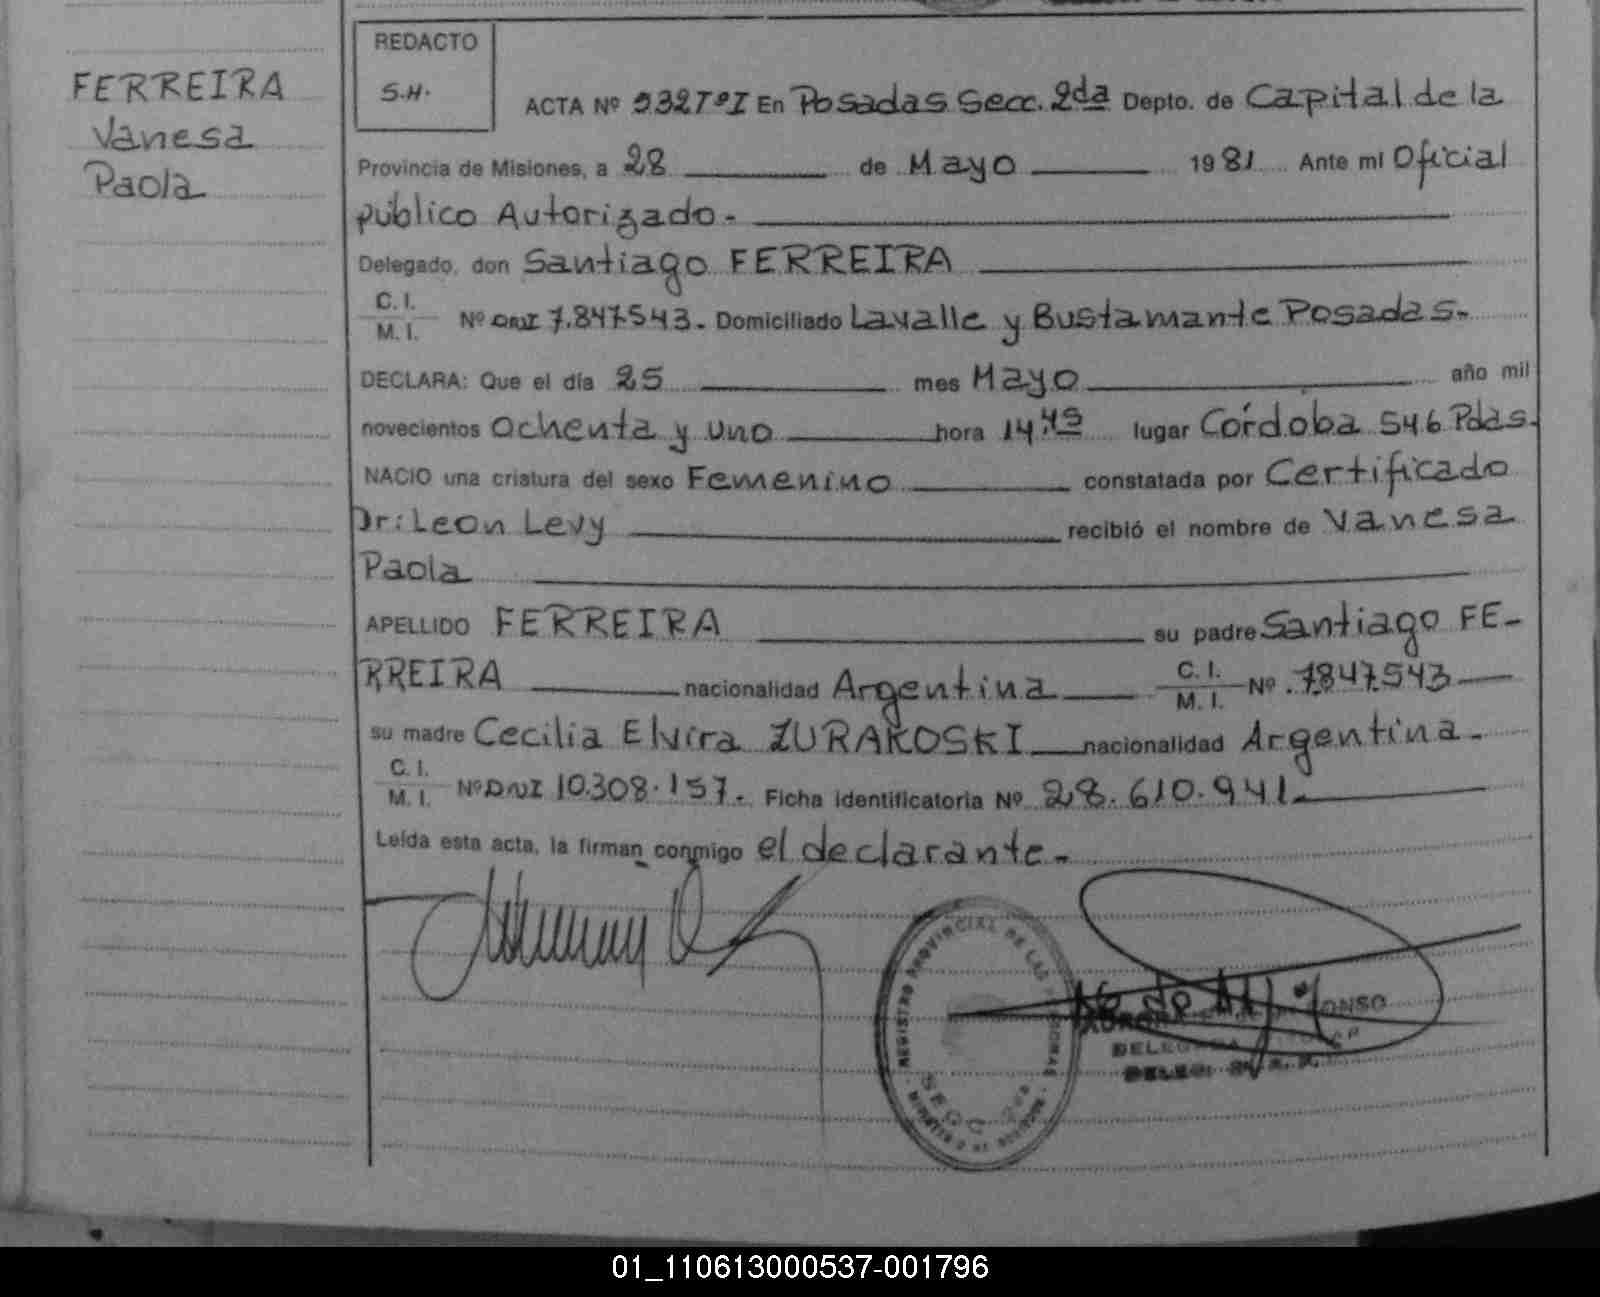 FERREIRA
Vanesa
Paola
REDACTO
S.H.
ACTA Nº 932TºI En Posadas Secc. 2da Depto. de Capital de la
Provincia de Misiones, a 28 de Mayo 1981 Ante mi Oficial
público Autorizado.-
Delegado, don Santiago FERREIRA
C. I.
M. I. Nº DNI 7.847.543. Domiciliado Lavalle y Bustamante Posadas.
DECLARA: Que el día 25 mes Mayo año mil
novecientos ochenta y uno hora 14:45 lugar Córdoba 546 Pdas.
NACIO una criatura del sexo Femenino constatada por Certificado
Dr: Leon Levy recibió el nombre de Vanesa
Paola
APELLIDO FERREIRA su padre Santiago FE-
RREIRA nacionalidad Argentina C. I. M. I. Nº 7.847.543
su madre Cecilia Elvira ZURAKOSKI nacionalidad Argentina.
C. I.
M. I. Nº DNI 10.308.157. Ficha identificatoria Nº 28.610.941.
Leída esta acta, la firman conmigo el declarante.
REGISTRO PROVINCIAL DE LAS PERSONAS
SECC. 2da
01_110613000537-001796